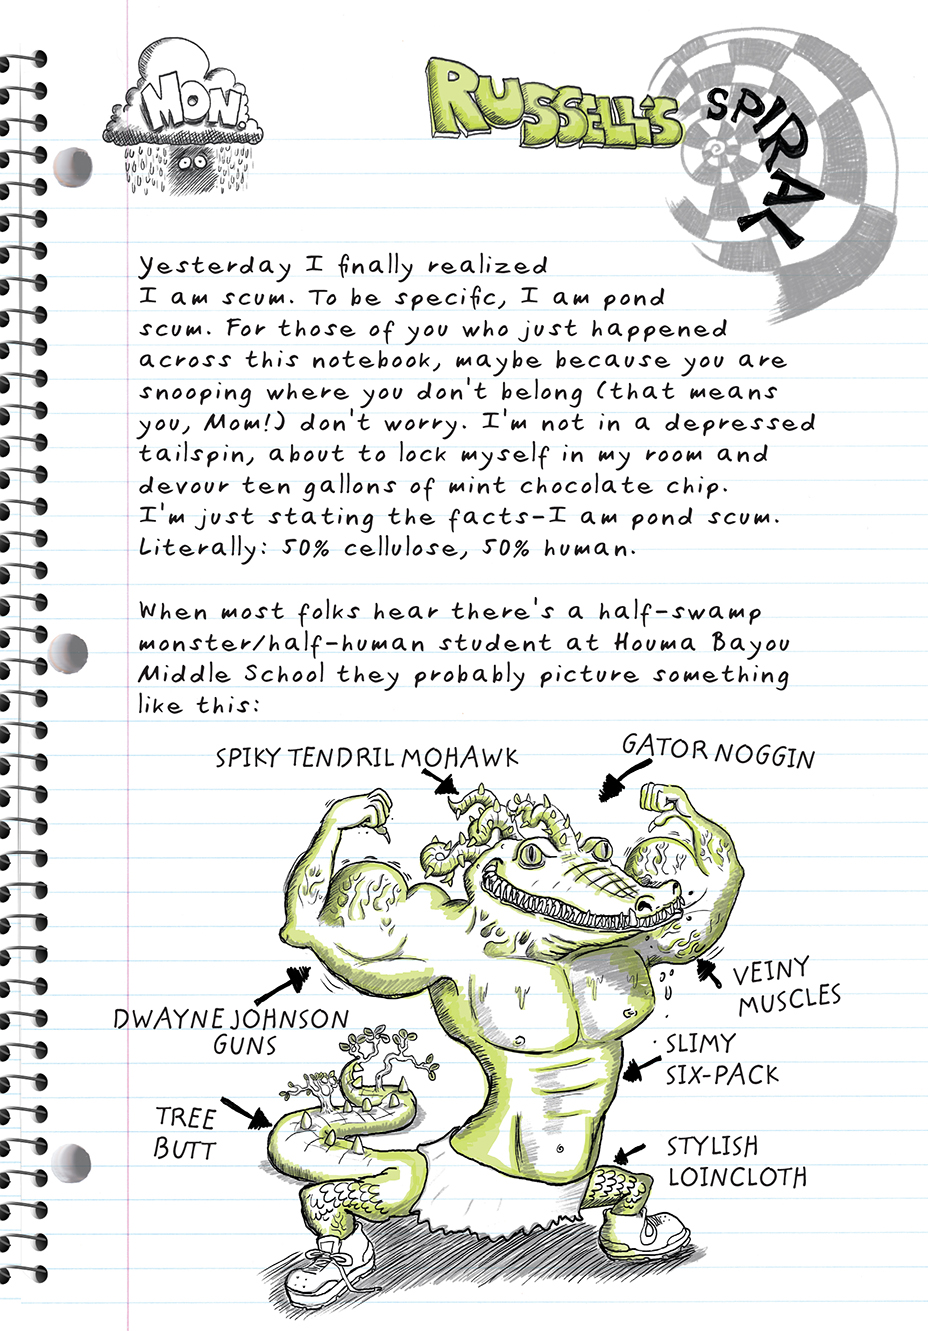 MON.
RUSSELL'S
SPIRAL
Yesterday I finally realized
I am scum. To be specifc, I am pond
scum. For those of you who just happened
across this notebook, maybe because you are
snooping where you don't belong (that means
you, Mom!) don't worry. I'm not in a depressed
tailspin, about to lock myself in my room and
devour ten gallons of mint chocolate chip.
I'm just stating the facts-I am pond scum.
Literally: 50% cellulose, 50% human.
When most folks hear there's a half-swamp
monster/half-human student at Houma Bayou
Middle School they probably picture something
like this:
SPIKY TENDRIL MOHAWK
GATOR NOGGIN
VEINY
MUSCLES
DWAYNE JOHNSON
GUNS
SLIMY
SIX-PACK
TREE
BUTT
STYLISH
LOINCLOTH